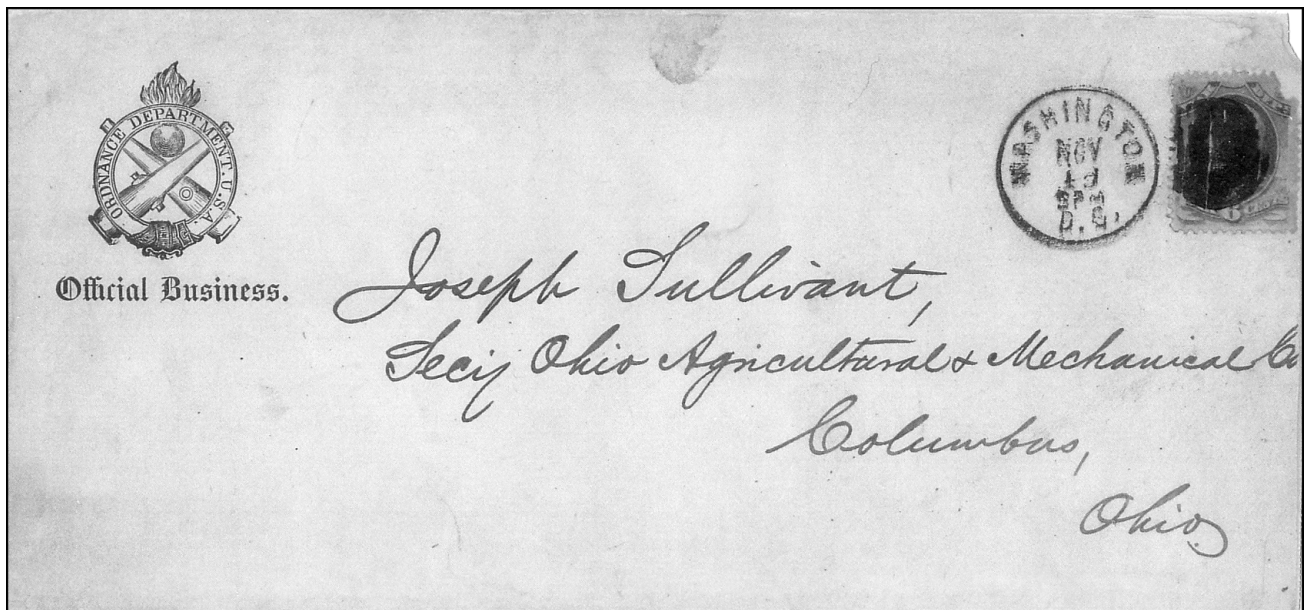 ORDNANCE DEPARTMENT. U.S.A.
Official Business.
WASHINGTON
NOV
D.C.
Joseph Sullivant,
Secy Ohio Agricultural & Mechanical Co
Columbus,
Ohio